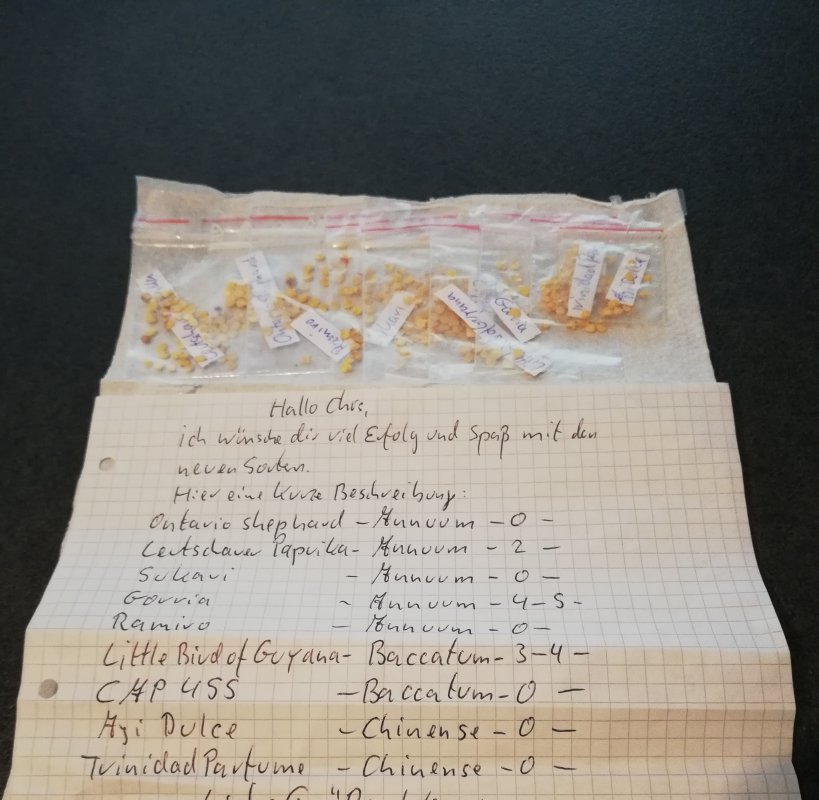 Ramiro
Hallo Chris,
ich wünsche dir viel Erfolg und Spaß mit den
neuen Sorten.
Hier eine kurze Beschreibung:
Ontario shephard - Annuum - 0 -
Leutschauer Paprika - Annuum - 2 -
Sukavi - Annuum - 0 -
Gorria - Annuum - 4-5 -
Ramiro - Annuum - 0 -
Little Bird of Guyana - Baccatum - 3-4 -
CAP 455 - Baccatum - 0 -
Aji Dulce - Chinense - 0 -
Trinidad Parfume - Chinense - 0 -